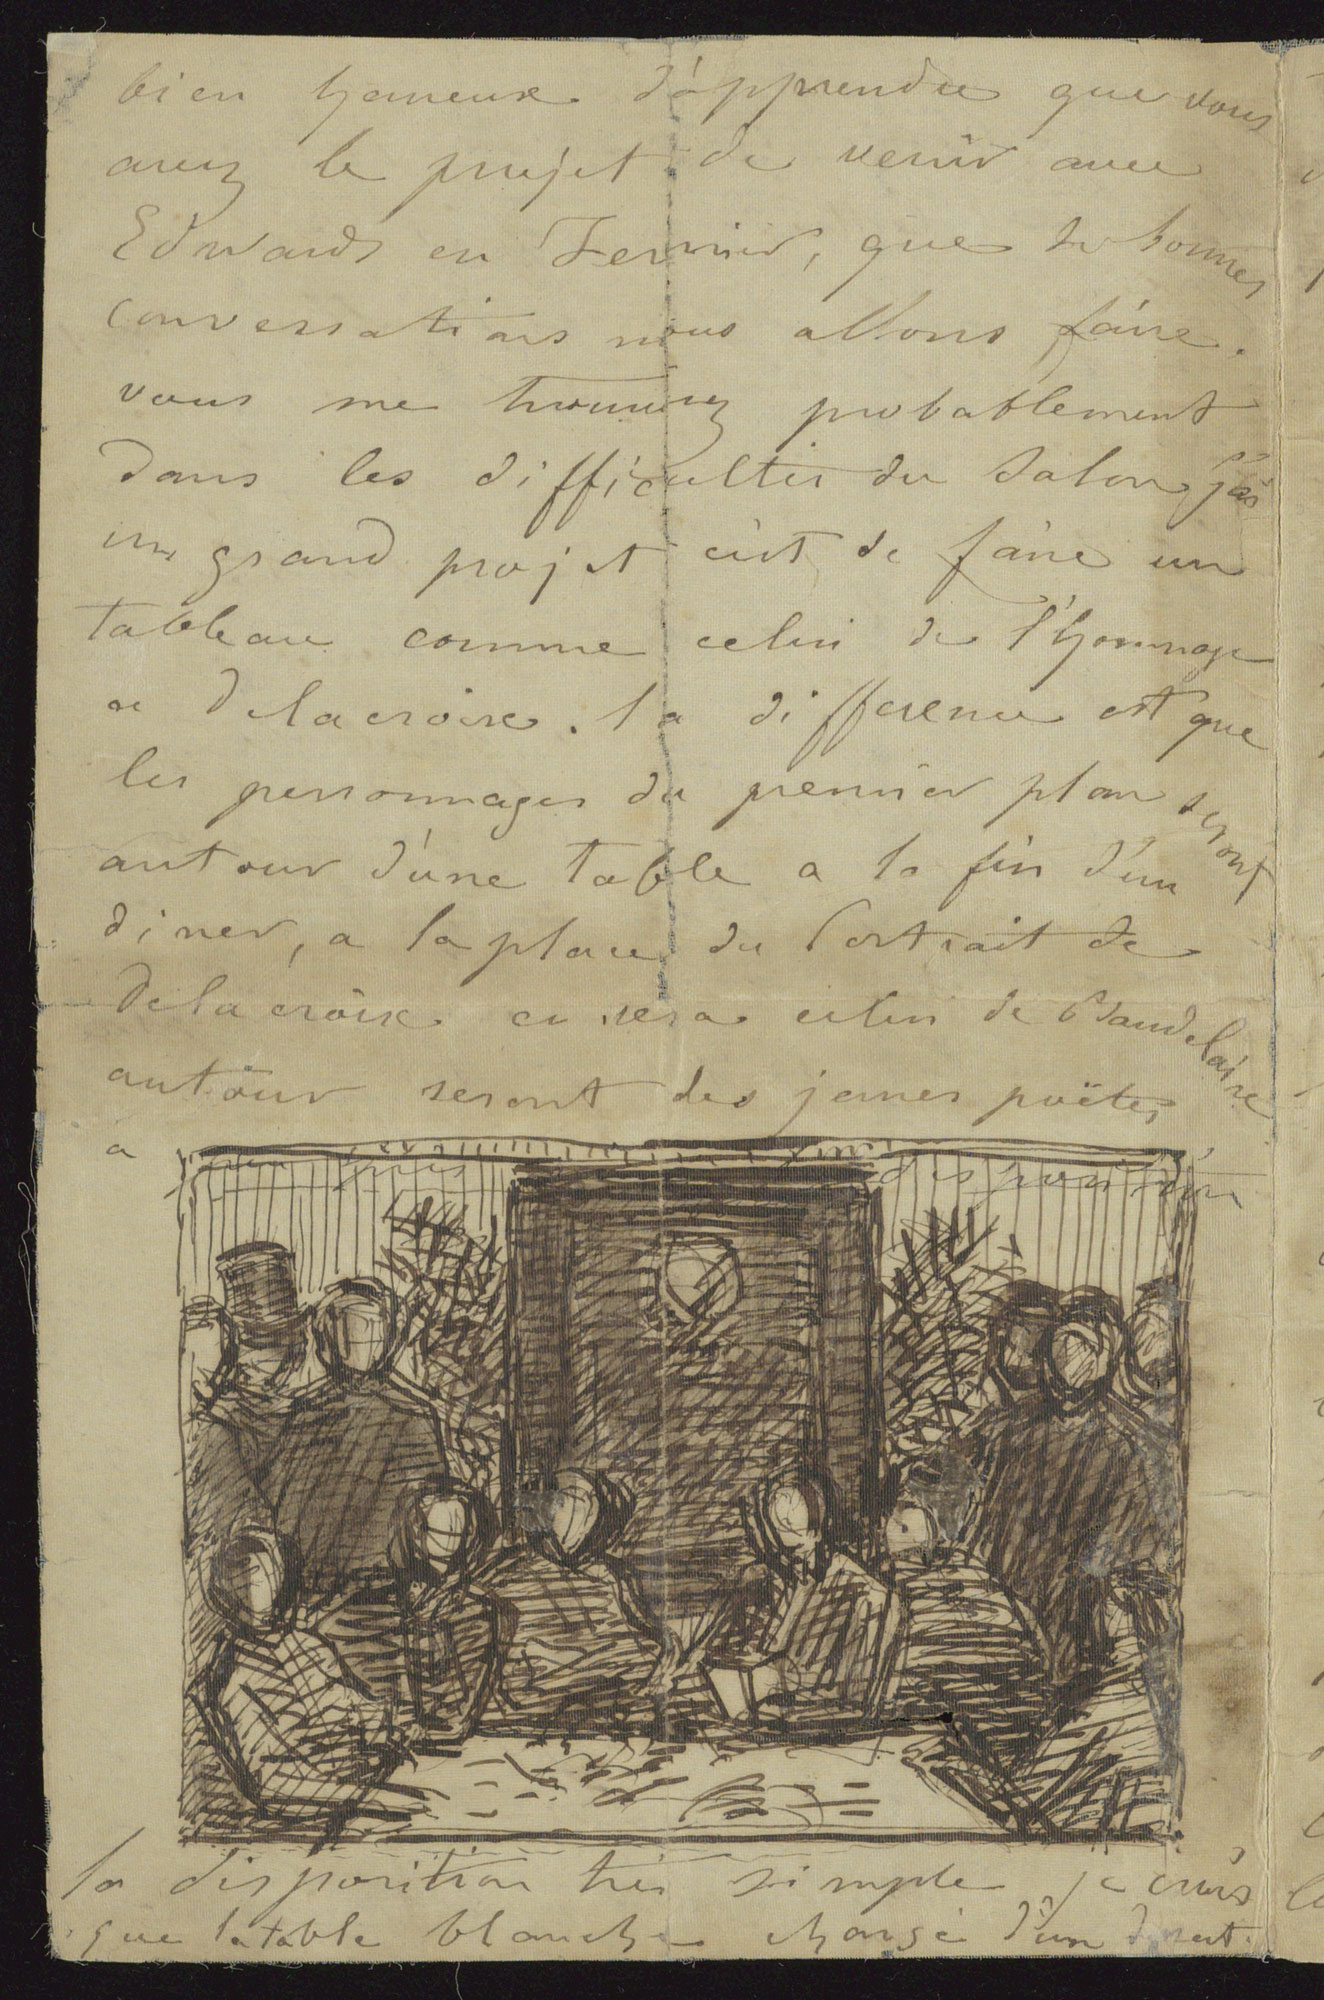 bien heureux d'apprendre que vous
avez le projet de venir avec
Edwards en Fevrier, que de bonnes
conversations nous allons faire.
vous me trouverez probablement
dans les difficultés du Salon, j'ai
un grand projet c'est de faire un
tableau comme celui de l'hommage
a Delacroix. la difference est que
les personnages du premier plan seront
autour d'une table a la fin d'un
diner, a la place du Portrait de
Delacroix ce sera celui de Baudelaire
autour seront des jeunes poëtes
a
la disposition très simple je crois
que la table blanche chargé d'un dessert